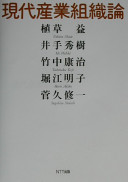 現代産業組織論
植草 益
井手秀樹
竹中康治
堀江明子
菅久修一
NTT出版